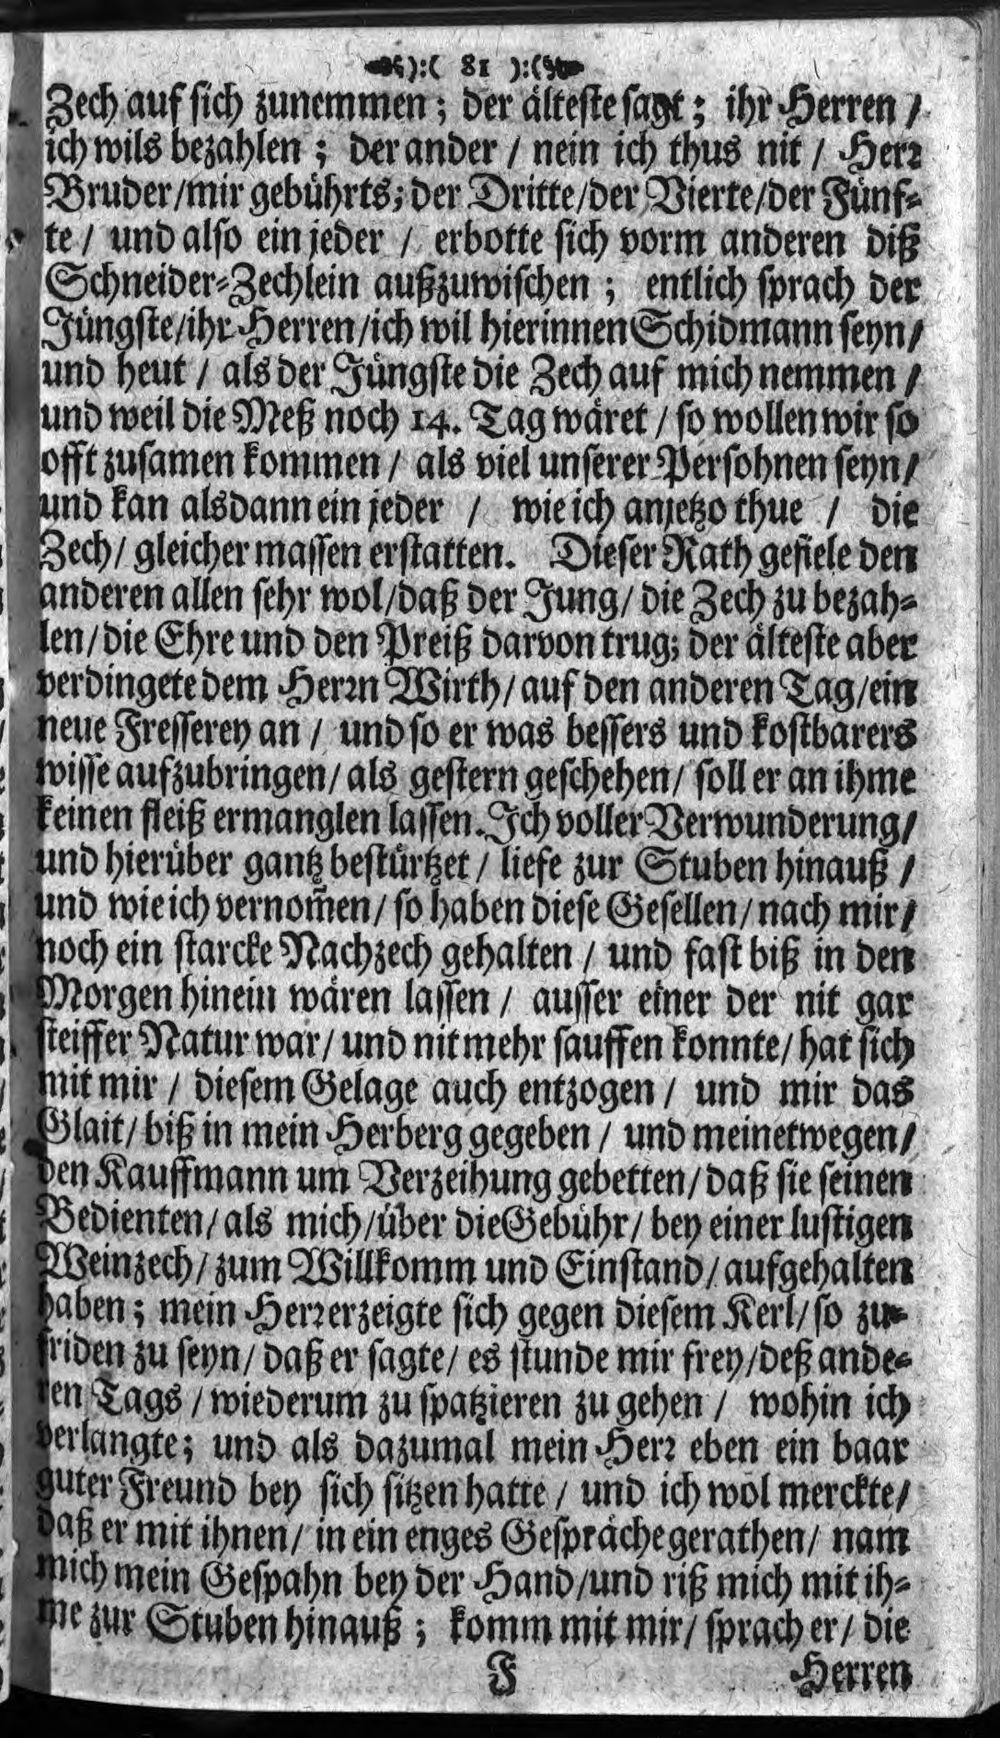 ):( 81 ):(
Zech auf sich zunemmen; der älteste sagt; ihr Herren /
ich wils bezahlen; der ander / nein ich thus nit / Herꝛ
Bruder/mir gebührts; der Dritte/der Vierte/der Fünf-
te / und also ein jeder / erbotte sich vorm anderen diß
Schneider-Zechlein außzuwischen; entlich sprach der
Jüngste/ihr Herren/ich wil hierinnen Schidmann seyn/
und heut / als der Jüngste die Zech auf mich nemmen /
und weil die Meß noch 14. Tag wäret / so wollen wir so
offt zusamen kommen / als viel unserer Persohnen seyn/
und kan alsdann ein jeder / wie ich anjetzo thue / die
Zech/ gleicher massen erstatten. Dieser Rath gefiele den
anderen allen sehr wol/daß der Jung/ die Zech zu bezah-
len/die Ehre und den Preiß darvon trug; der älteste aber
verdingete dem Herꝛn Wirth/ auf den anderen Tag/ein
neue Fresserey an / und so er was bessers und kostbarers
wisse aufzubringen/ als gestern geschehen/ soll er an ihme
keinen fleiß ermanglen lassen. Ich voller Verwunderung/
und hierüber gantz bestürtzet / liefe zur Stuben hinauß /
und wie ich vernom̃en/ so haben diese Gesellen/ nach mir/
noch ein starcke Nachzech gehalten / und fast biß in den
Morgen hinein wären lassen / ausser einer der nit gar
steiffer Natur war/ und nit mehr sauffen konnte/ hat sich
mit mir / diesem Gelage auch entzogen / und mir das
Glait/ biß in mein Herberg gegeben / und meinetwegen/
den Kauffmann um Verzeihung gebetten/ daß sie seinen
Bedienten/ als mich/über die Gebühr/ bey einer lustigen
Weinzech/ zum Willkomm und Einstand/ aufgehalten
haben; mein Herꝛ erzeigte sich gegen diesem Kerl/ so zu-
friden zu seyn/ daß er sagte/ es stunde mir frey/deß ande-
ren Tags / wiederum zu spatzieren zu gehen / wohin ich
verlangte; und als dazumal mein Herꝛ eben ein baar
guter Freund bey sich sitzen hatte / und ich wol merckte/
daß er mit ihnen/ in ein enges Gespräche gerathen/ nam
mich mein Gespahn bey der Hand/und riß mich mit ih-
me zur Stuben hinauß; komm mit mir/ sprach er/ die
F Herren